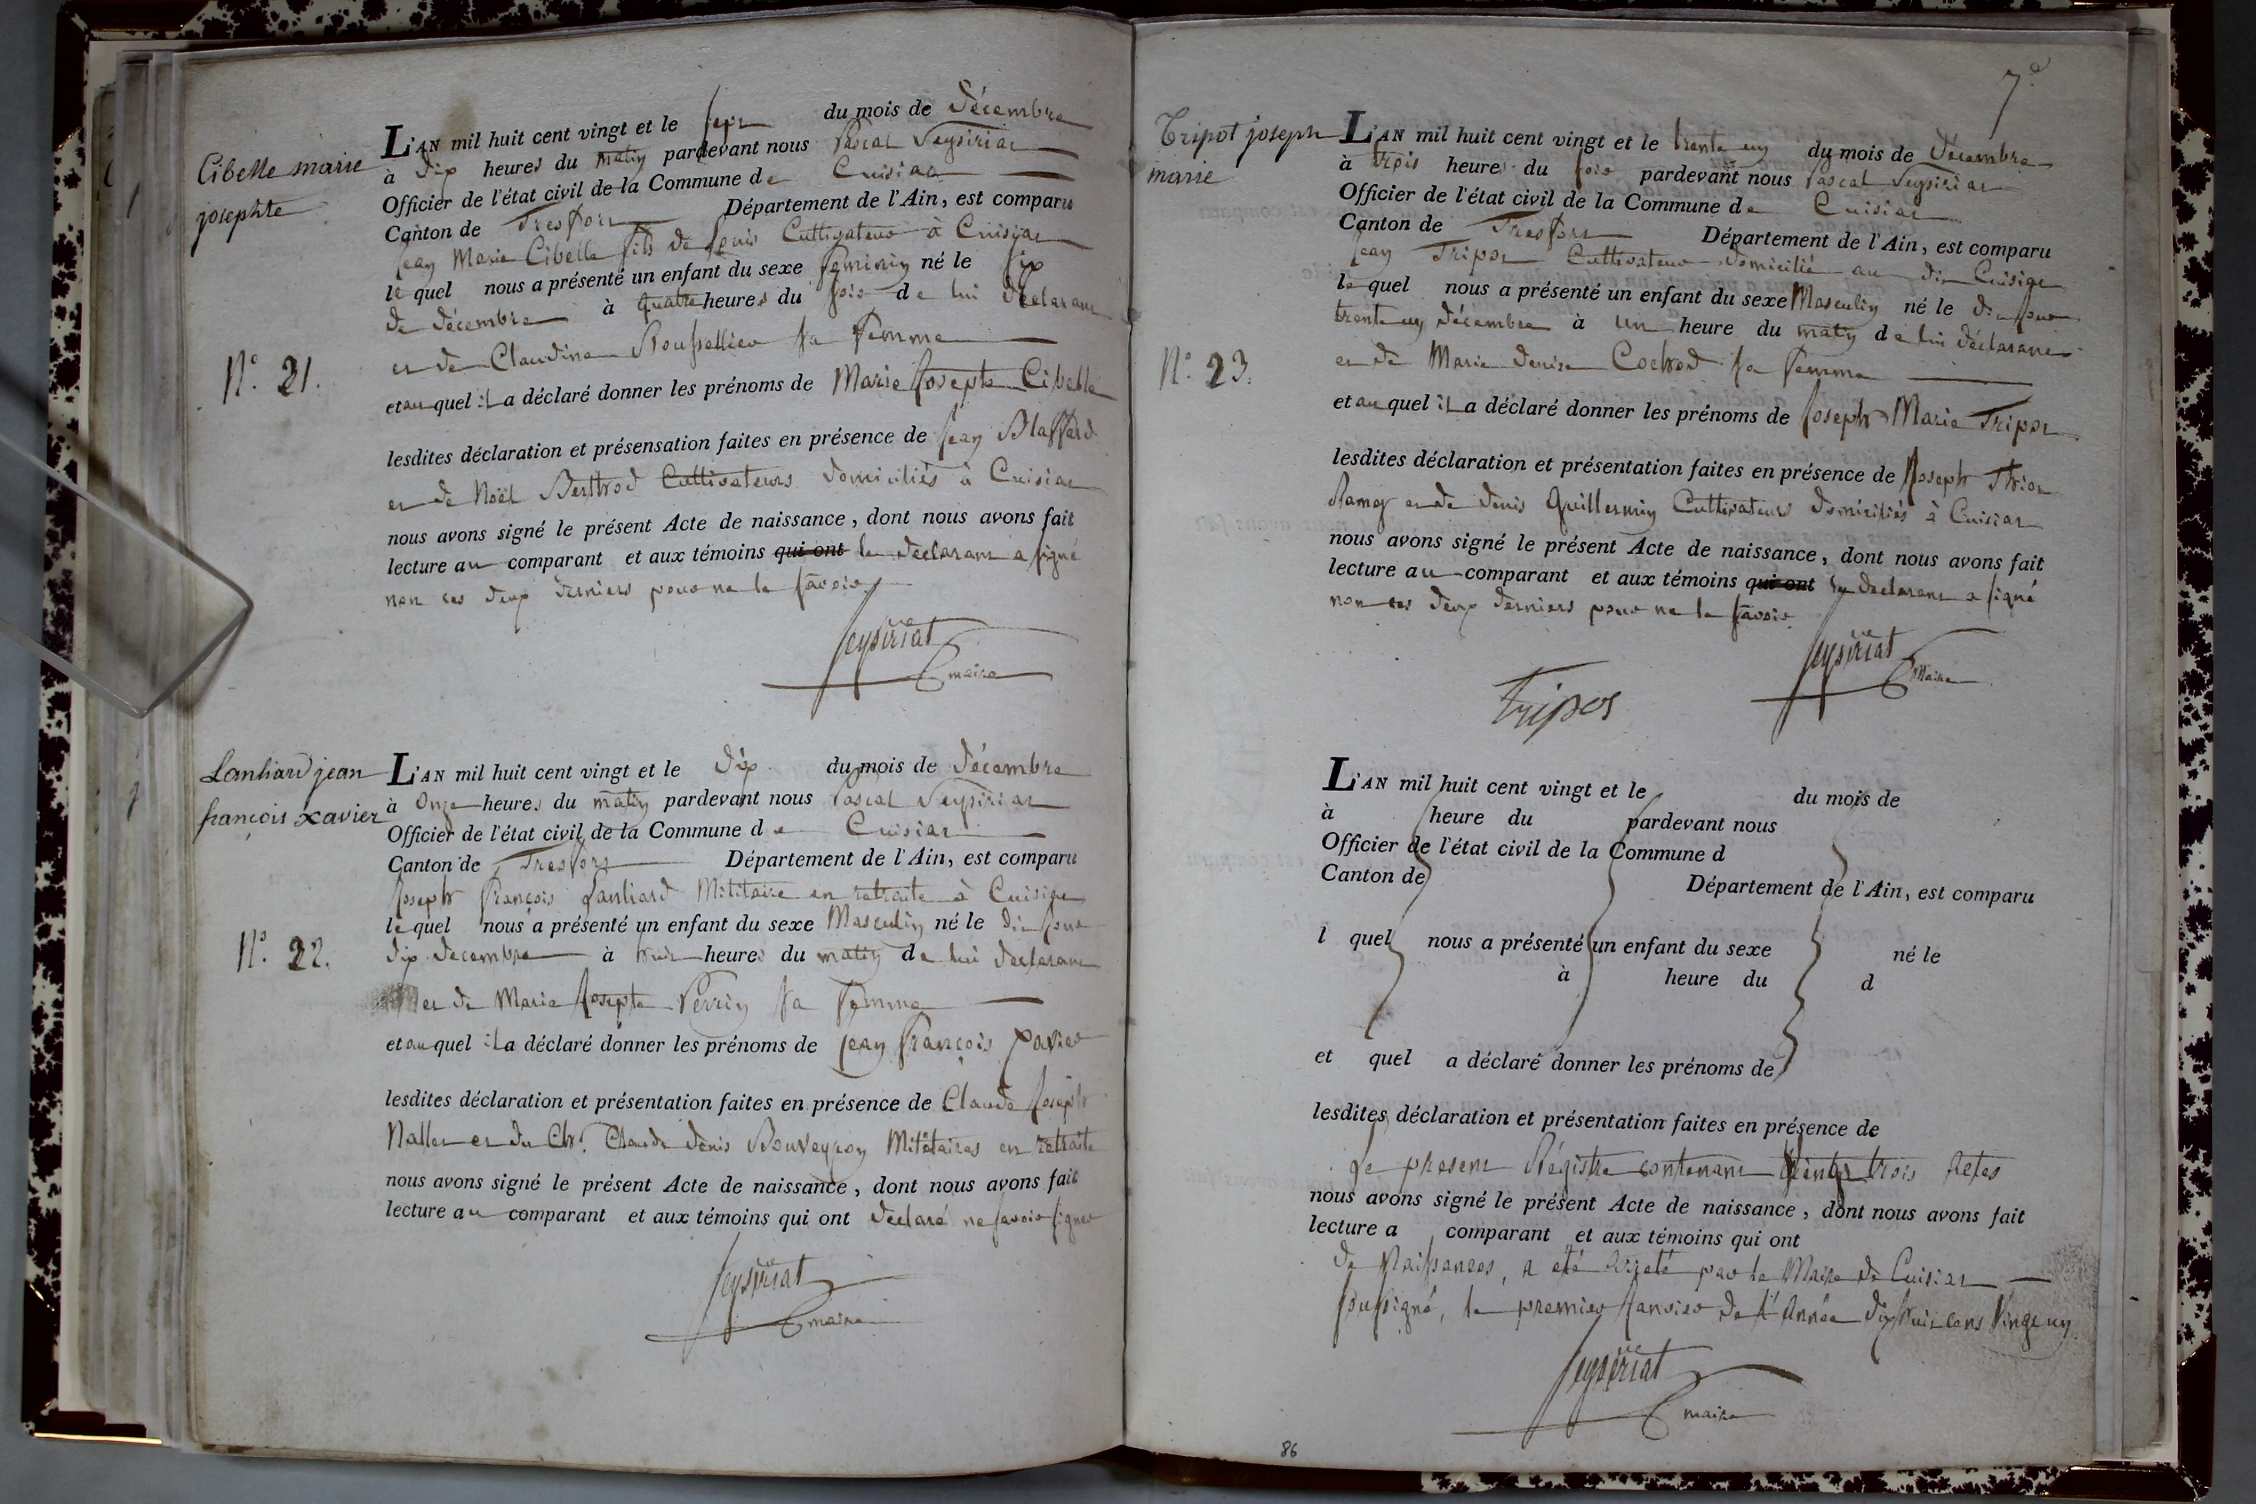 Cibelle marie
josephte
N.° 21.
L'AN mil huit cent vingt et le sept du mois de décembre
à dix heures du matin pardevant nous Pascal Seysiriat
Officier de l'état civil de la Commune de Cuisiat
Canton de Treffort Département de l'Ain, est comparu
Jean Marie Cibelle fils de Louis Cultivateur à Cuisiat
lequel nous a présenté un enfant du sexe féminin né le six
de décembre à quatre heures du soir de lui déclarant
et de Claudine Rousselier sa femme
et auquel il a déclaré donner les prénoms de Marie Josephte Cibelle
lesdites déclaration et présensation faites en présence de Jean Blaffard
et de Noël Berthod Cultivateurs domiciliés à Cuisiat
nous avons signé le présent Acte de naissance, dont nous avons fait
lecture au comparant et aux témoins qui ont le déclarant a signé
non ces deux derniers pour ne le savoir
Seysiriat
maire
Lanliard jean
françois xavier
N.° 22.
L'AN mil huit cent vingt et le dix du mois de décembre
à Onze heures du matin pardevant nous Pascal Seysiriat
Officier de l'état civil de la Commune de Cuisiat
Canton de Treffort Département de l'Ain, est comparu
Joseph François Lanliard Militaire en retraite à Cuisiat
lequel nous a présenté un enfant du sexe Masculin né le dit jour
dix décembre à huit heures du matin de lui déclarant
et de Marie Josephte Perrin sa femme
et auquel il a déclaré donner les prénoms de Jean François Xavier
lesdites déclaration et présentation faites en présence de Claude Joseph
Nallet et du Ch.r Claude Denis Bouveyron Militaires en retraite
nous avons signé le présent Acte de naissance, dont nous avons fait
lecture au comparant et aux témoins qui ont déclaré ne savoir signer
Seysiriat
maire
7.e
Tripot joseph
marie
N.° 23.
L'AN mil huit cent vingt et le trente un du mois de décembre
à trois heures du soir pardevant nous Pascal Seysiriat
Officier de l'état civil de la Commune de Cuisiat
Canton de Treffort Département de l'Ain, est comparu
Jean Tripot Cultivateur domicilié au dit Cuisiat
lequel nous a présenté un enfant du sexe Masculin né le dit jour
trente un décembre à un heure du matin de lui déclarant
et de Marie Denise Cochod sa femme
et auquel il a déclaré donner les prénoms de Joseph Marie Tripot
lesdites déclaration et présentation faites en présence de Joseph
et de Denis Guillermin Cultivateurs domiciliés à Cuisiat
nous avons signé le présent Acte de naissance, dont nous avons fait
lecture au comparant et aux témoins qui ont le déclarant a signé
non ces deux derniers pour ne le savoir
Seysiriat
Maire
Tripot
L'AN mil huit cent vingt et le du mois de
à heure du pardevant nous
Officier de l'état civil de la Commune d
Canton de Département de l'Ain, est comparu
l quel nous a présenté un enfant du sexe né le
à heure du d
et quel a déclaré donner les prénoms de
lesdites déclaration et présentation faites en présence de
Le present Régistre contenant Vingt trois Actes
nous avons signé le présent Acte de naissance, dont nous avons fait
lecture a comparant et aux témoins qui ont
de Naissances, a été Arreté par le Maire de Cuisiat
soussigné, le premier Janvier de l'Année dix huit cent Vingt un
Seysiriat
maire
86